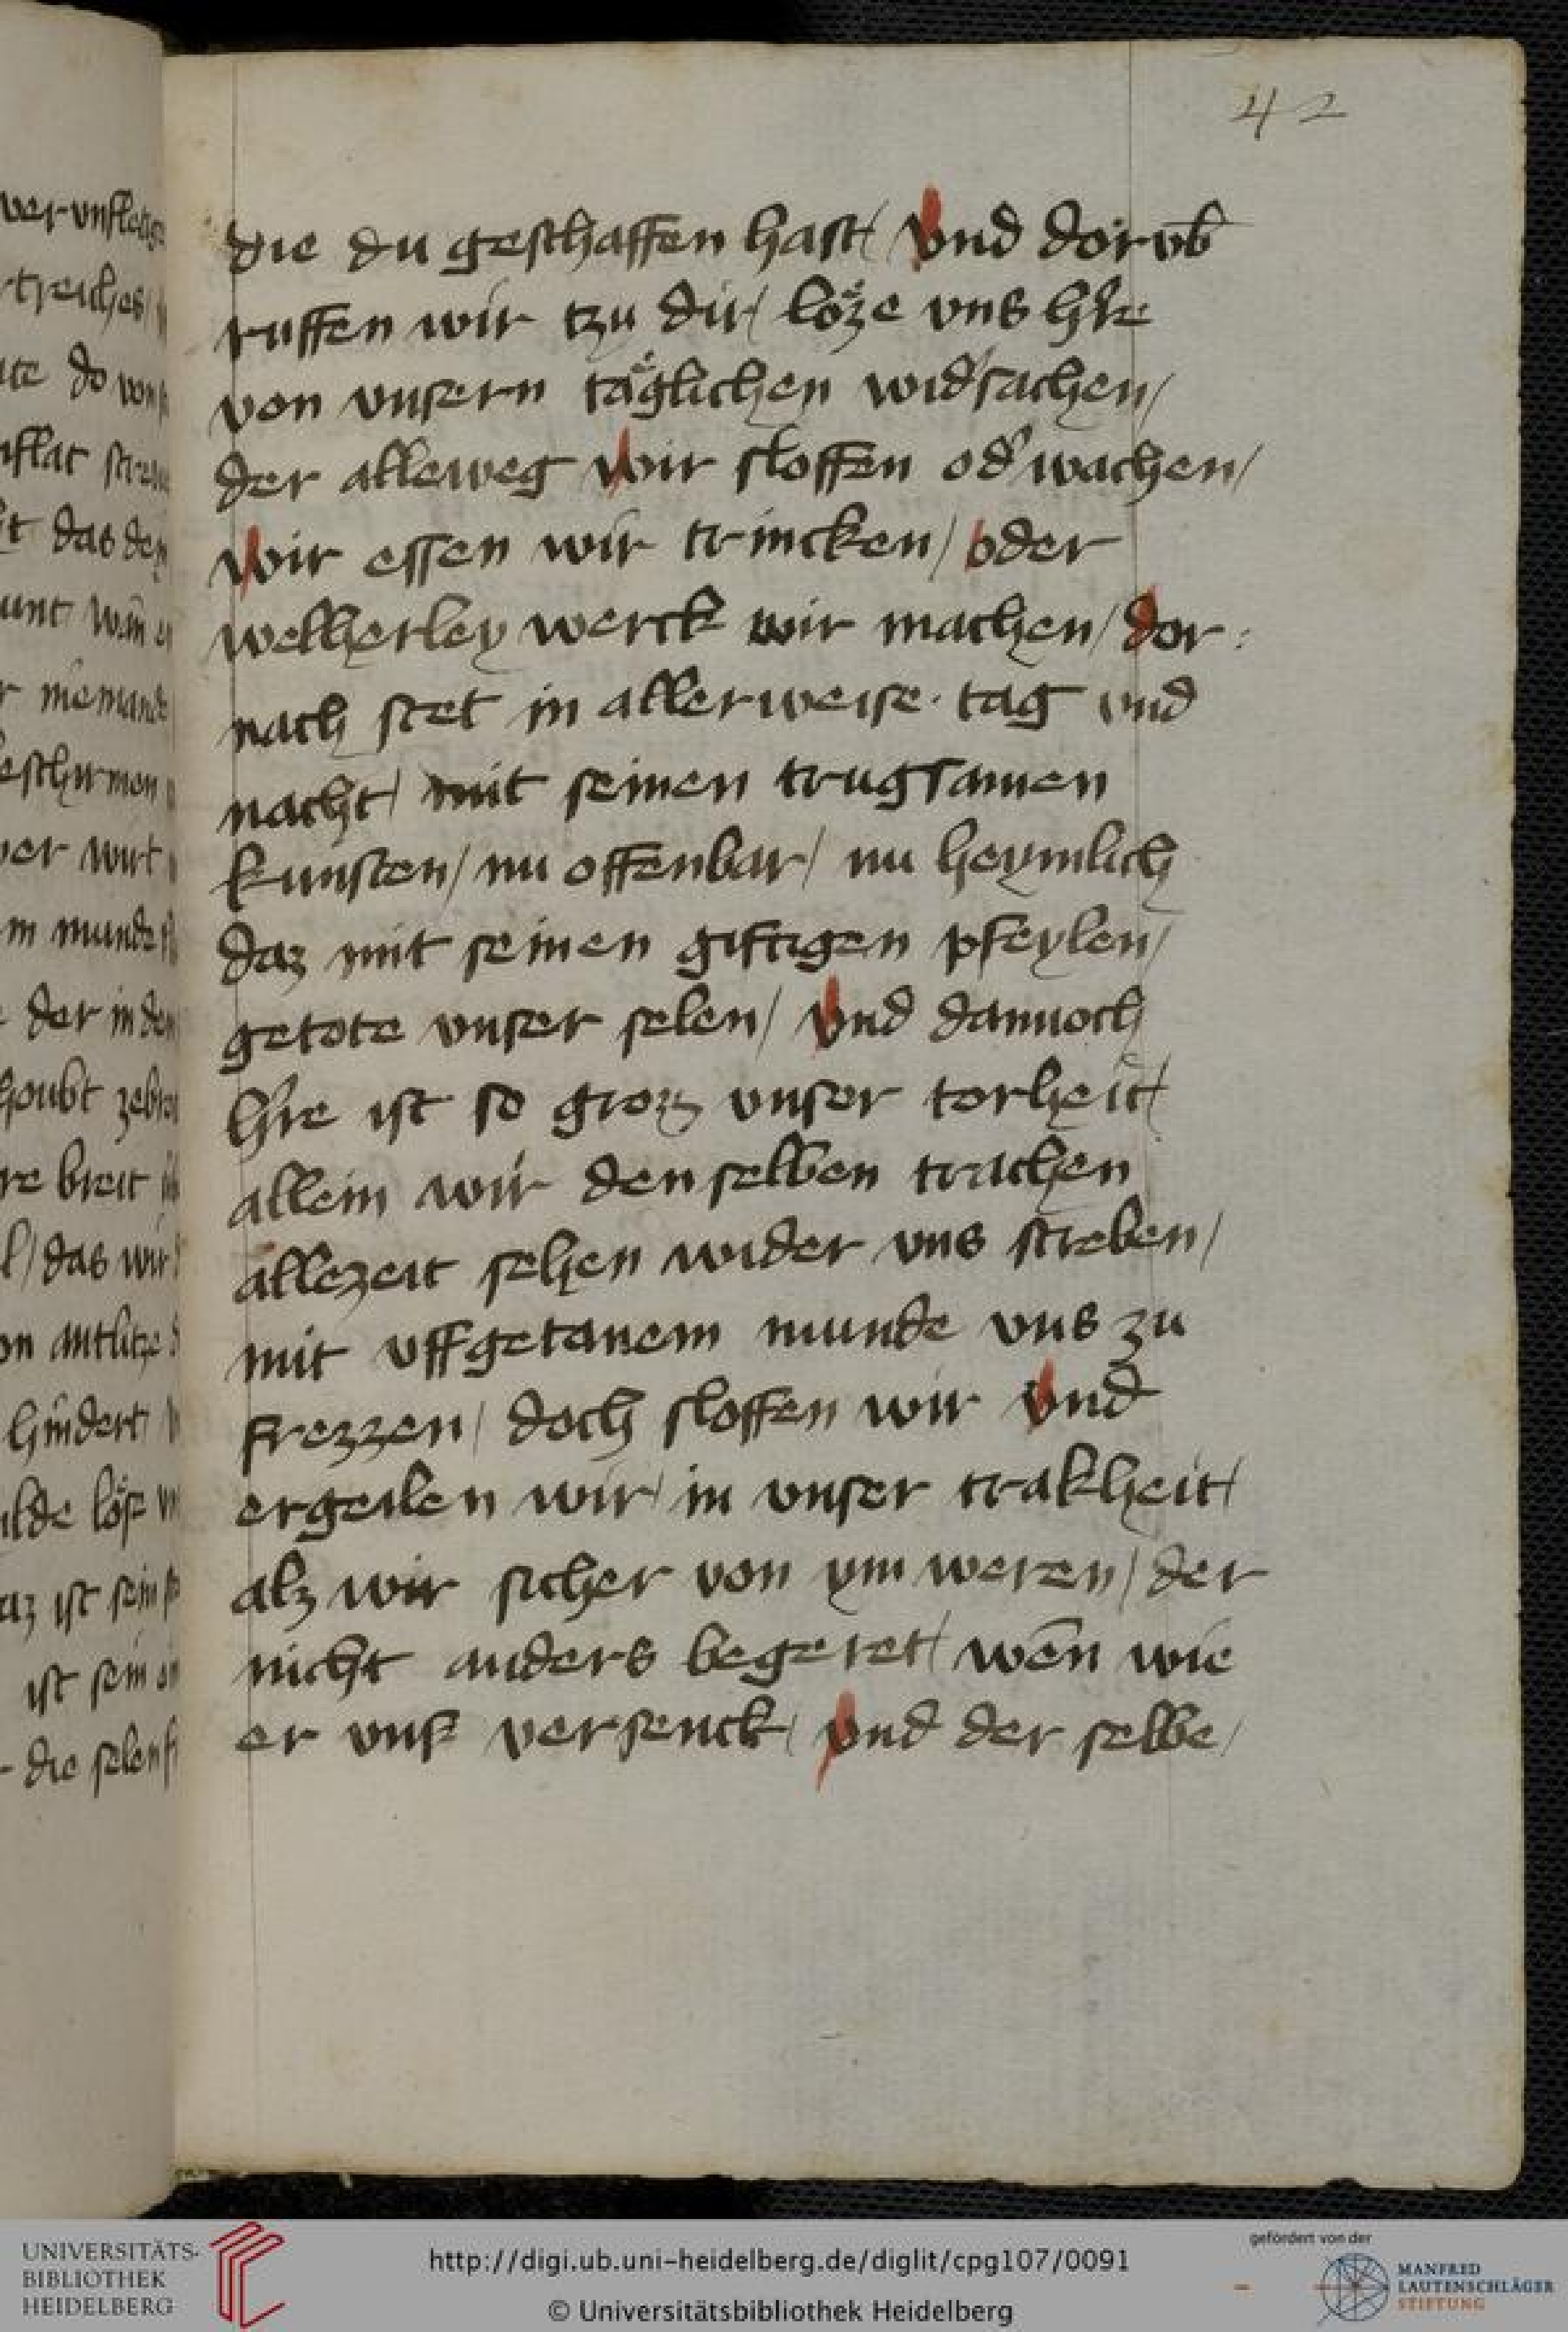 42
die du geschaffen hast/ vnd dorvb̄
ruffen wir tzu dir/ loͤze vns h're
von vnsern taͤglichen wid'sachen/
der alleweg wir sloffen od' wachen/
wir essen wir trincken/ oder
welherley werck wir machen/ dor:
nach stet in allerweise· tag vnd
nacht/ mit seinen trugsamen
kunsten/ nu offenbar/ nu heymlich
daz mit seinen giftigen pfeylen/
getote vnser selen/ vnd dannoch
h're ist so groz vnser torheit/
allein wir den selben trachen
allezeit sehen wider vns streben/
mit vffgetanem munde vns zu
frezzen/ doch sloffen wir vnd
ergeilen wir/ in vnser trakheit/
alz wir sicher von ym weren/ der
nicht anders begeret/ wēn wie
er vnß versenck/ vnd der selbe/
UNIVERSITÄTS-
BIBLIOTHEK
HEIDELBERG
http://digi.ub.uni-heidelberg.de/diglit/cpg107/0091
© Universitätsbibliothek Heidelberg
gefördert von der
MANFRED
LAUTENSCHLÄGER
STIFTUNG